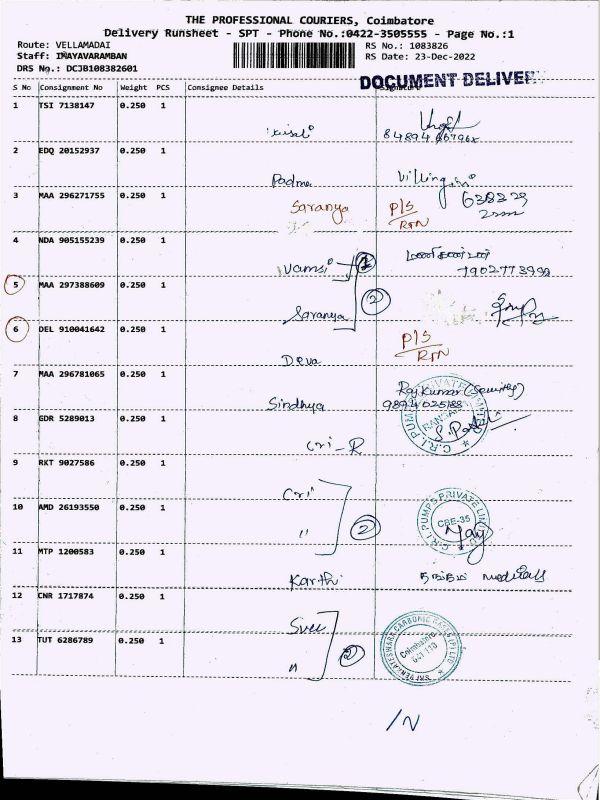 THE PROFESSIONAL COURIERS, Coimbatore
Delivery Runsheet - SPT - Phone No.:0422-3505555 - Page No.:1
Route: VELLAMADAI
RS No.: 1083826
Staff: INAYAVARAMBAN
RS Date: 23-Dec-2022
DRS No.: DCJB108382601
DOCUMENT DELIVER
S No Consignment No Weight PCS Consignee Details
1 TSI 7138147 0.250 1
2 EDQ 20152937 0.250 1
Padma
3 MAA 296271755 0.250 1
Saranya P/S RTN
4 NDA 905155239 0.250 1
Vamsi
5 MAA 297388609 0.250 1
Saranya 2
6 DEL 910041642 0.250 1
Deva P/S RTN
7 MAA 296781065 0.250 1
Sindhya Raj Kumar (Security)
9894025188
8 GDR 5289013 0.250 1
Cri-R
9 RKT 9027586 0.250 1
Cri
10 AMD 26193550 0.250 1
" 2
C.R.I. PUMPS PRIVATE
CBE-35
11 MTP 1200583 0.250 1
Karthi
12 CNR 1717874 0.250 1
Sree
13 TUT 6286789 0.250 1
" 2
SRI VENKATESWARA CARBONIC GASES (P) LTD
Coimbatore
641 110
/N